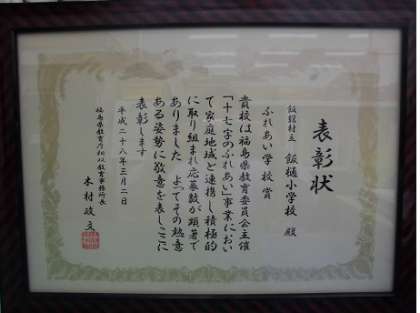 表彰状
飯舘村立 飯樋小学校 殿
ふれあい学校賞
貴校は福島県教育委員会主催
「十七字のふれあい」事業におい
て家庭地域と連携し積極的
に取り組まれ応募数が顕著で
ありました よってその熱意
ある姿勢に敬意を表しここに
表彰します
平成二十八年三月二日
福島県教育庁相双教育事務所長
木村政文